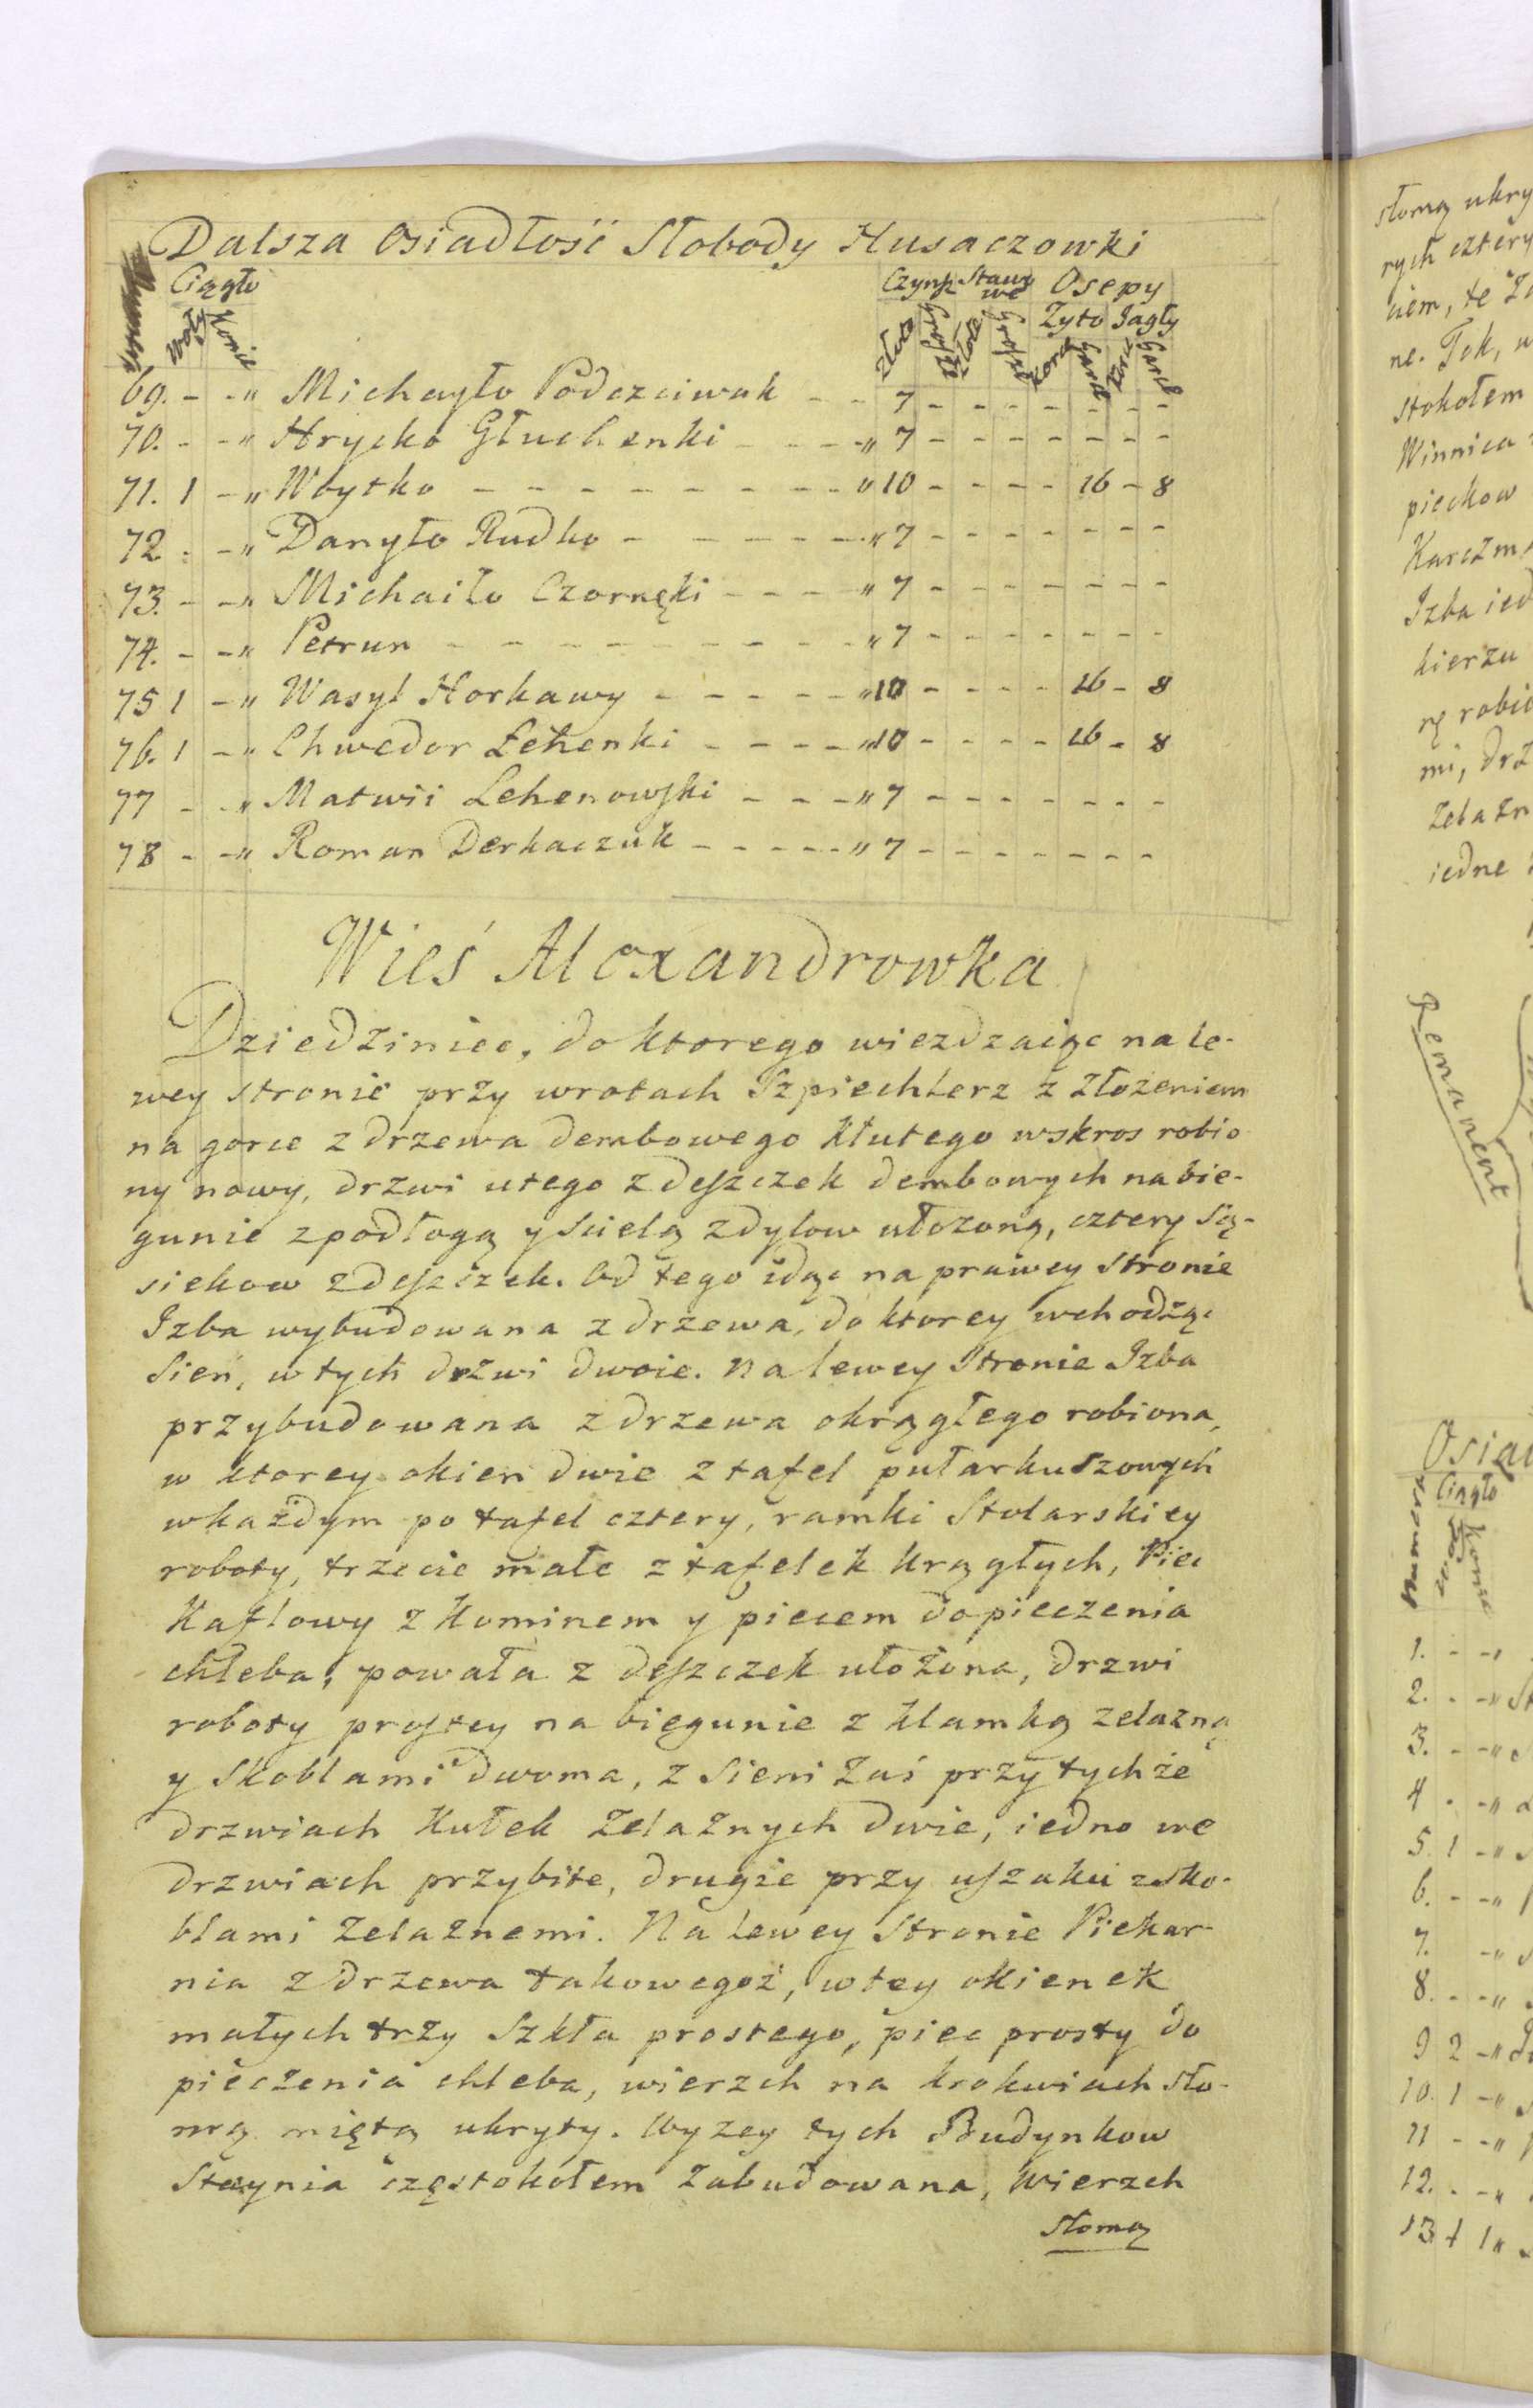 Dalsza Osiadłość Słobody Husaczowki
Numera Ciągło Czynsz Stawowe Osepy
Woły Konie Złote Grosze Złote Grosze Żyto Jagły
Korce Garce Korce Garce
69. - - „ Michayło Podczciwak - - 7 - - - - - - -
70. - - „ Hrycko Głuchenki - - - - „ 7 - - - - - - -
71. 1 - „ Woytko - - - - - - - - - „ 10 - - - - 16 - 8
72. - - „ Danyło Rudko - - - - - - „ 7 - - - - - - -
73. - - „ Michaiło Czornęki - - - - „ 7 - - - - - - -
74. - - „ Petrun - - - - - - - - - „ 7 - - - - - - -
75 1 - „ Wasyl Horkawy - - - - - „ 10 - - - - 16 - 8
76. 1 - „ Chwedor Lehenki - - - - „ 10 - - - - 16 - 8
77 - - „ Matwii Lehenowski - - - „ 7 - - - - - - -
78 - - „ Roman Derkaczuk - - - - - „ 7 - - - - - - -
Wieś Alexandrowka
Dziedziniec, do ktorego wiezdzaiąc na le-
wey stronie przy wrotach Szpiechlerz z złożeniem
na gorce z drzewa dembowego kłutego wskros robio
ny nowy, drzwi utego z deszczek dembowych na bie-
gunie z podłogą y scielą z dylow ułozoną, cztery są-
siekow z deszczek. Od tego idąc na prawey stronie
Izba wybudowana z drzewa, do ktorey wchodząc
Sień, w tych drzwi dwoie. Na lewey Stronie Izba
przybudowana z drzewa okrągłego robiona,
w ktorey okien dwie z tafel pułarkuszowych
w każdym po tafel cztery, ramki Stolarskiey
roboty, trzecie małe z tafelek krągłych, Piec
Kaflowy z Kominem y piecem do pieczenia
chleba, powała z deszczek ułożona, drzwi
roboty prostey na biegunie z klamką zelazną
y Skoblami dwoma, z Sieni Zaś przy tychże
drzwiach Kułek Zelaznych dwie, iedno we
drzwiach przybite, drugie przy uszaku z sko-
blami Zelaznemi. Na lewey Stronie Piekar-
nia z drzewa takowegoż, w tey okienek
małych trzy Szkła prostego, piec prosty do
pieczenia chleba, wierzch na krokwiach sło-
mą miętą ukryty. Wyzey tych Budynkow
Staynia częstokołem Zabudowana, Wierzch
słomą
słomą ukry
rych cztery
ne. Tok, w
stokołem
Winnica
piechow
Karczm
Izba ied
kierzu
nę robio
mi, drz
Zelazn
iedne
Remanent
Osiad
Numera Ciągło
Konie
1. - - „
2. - - „ St
3. - - „
4 - - „
5. 1 - „
6. - - „
7. - „
8. - - „
9 2 - „
10. 1 - „
11 - - „
12. - - „
13. 1 1 „